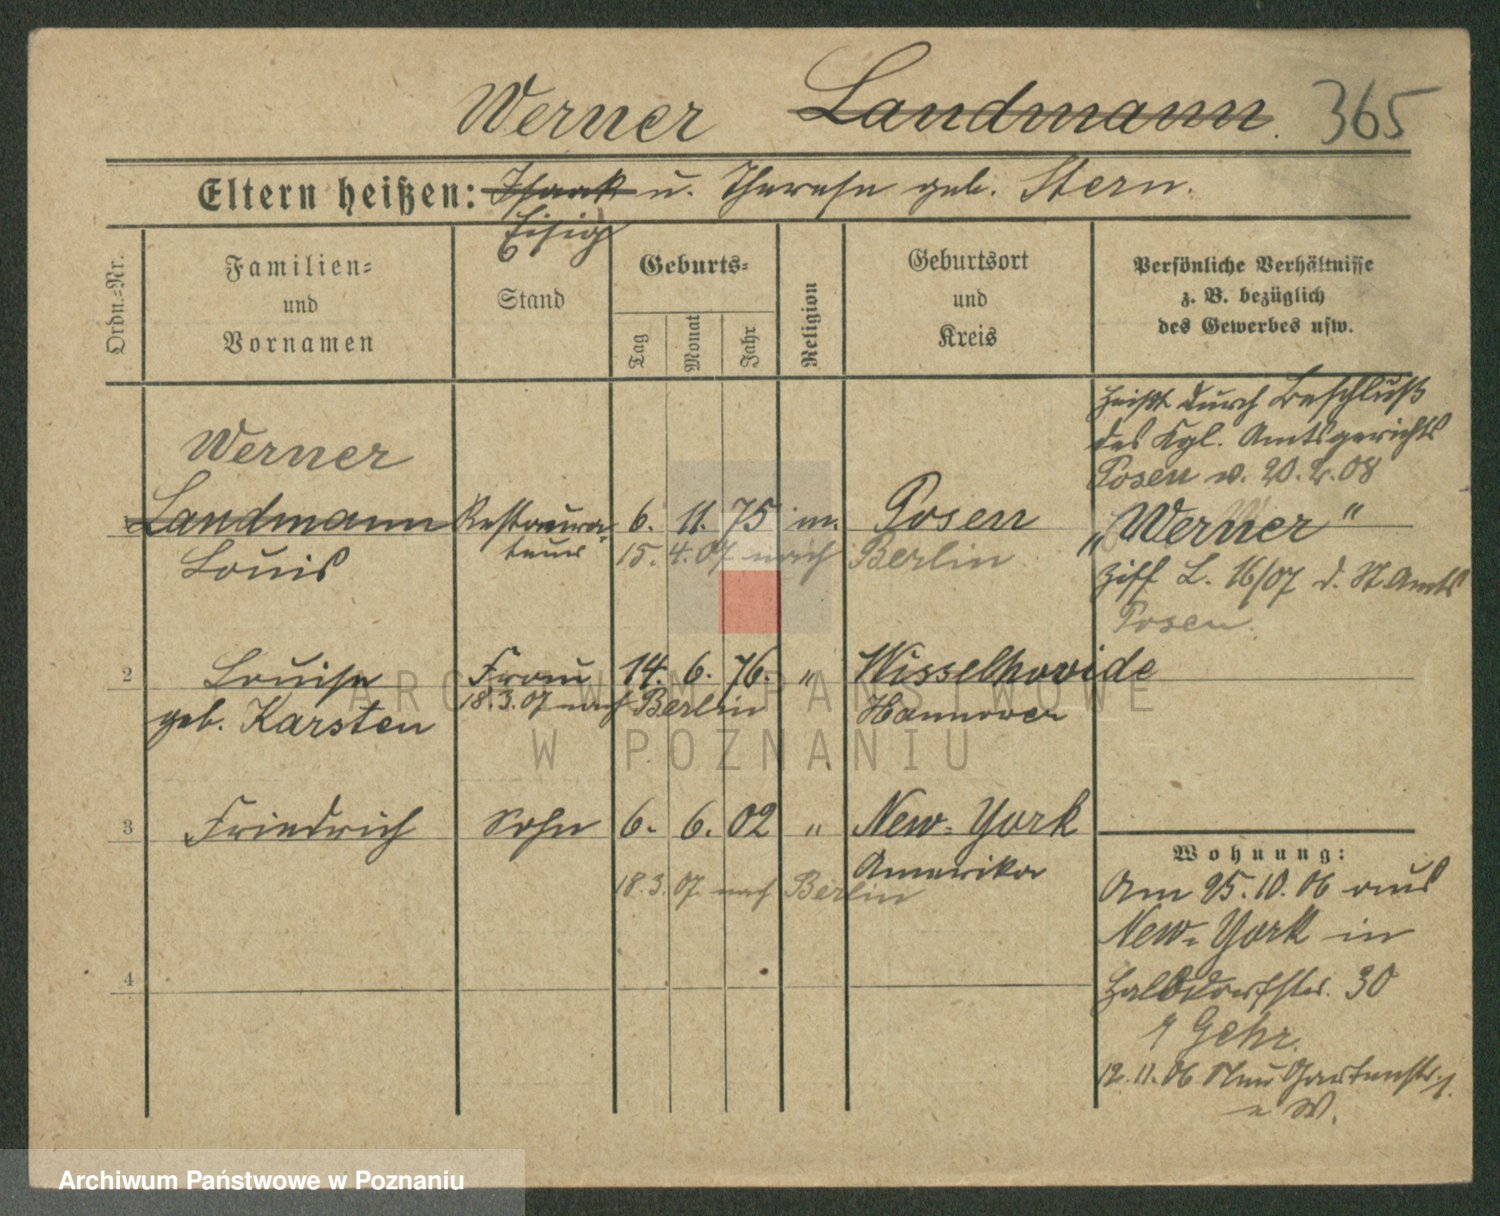 Werner Landmann. 365
Eltern heißen: Isaak u. Therese geb. Stern.
Eisig
Ordn.-Nr.
Familien-
und
Vornamen
Stand
Geburts-
Tag
Monat
Jahr
Religion
Geburtsort
und
Kreis
Persönliche Verhältnisse
z. B. bezüglich
des Gewerbes usw.
heißt durch Beschluß
des Kgl. Amtsgerichts
Posen v. 20. 2. 08
„Werner“
L. 16/07 d. St. Amts
Posen.
Werner
1 Landmann Restaura- 6. 11. 75 m. Posen
Louis teur 15. 4. 07 nach Berlin
2 Louise Frau 14. 6. 76. " Wisselhovide
geb. Karsten 18. 3. 07 nach Berlin Hannover
3 Friedrich Sohn 6. 6. 02 " New-York
Amerika
18. 3. 07. nach Berlin
4
Wohnung:
Am 25. 10. 06 aus
New-York in
Halbdorfstr. 30
Gehr.
12. 11. 06 Neu Gartenstr. 1.
W.
ARCHIWUM PAŃSTWOWE
W POZNANIU
Archiwum Państwowe w Poznaniu